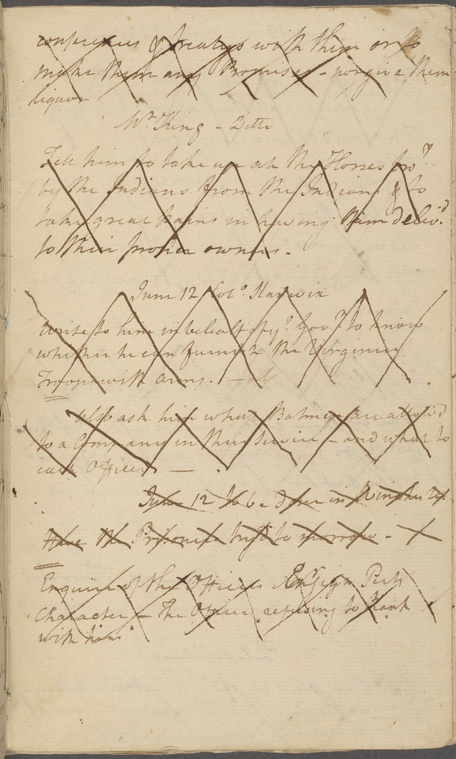 conferences & treatys with them or to
make them any Promises - nor give them
liquor
Mr King - Ditto
Tell him to take up all the Horses
by the Indians from the & to
take great pains in having them deliv.d
to their proper owners.
June 12 Colo Stanwix
Write to him in behalf of ye Govr to know
whether he can furnish the Virginia
Troops with arms.
also ask him what Batmen are allow'd
to a Company in their Service - and what to
each Officer -
June 12 To be done in Winchester
Have the Prisoners try'd to morrow -
Enquire of the Officers Ensign
Character - the Officers refusing to Rank
with him